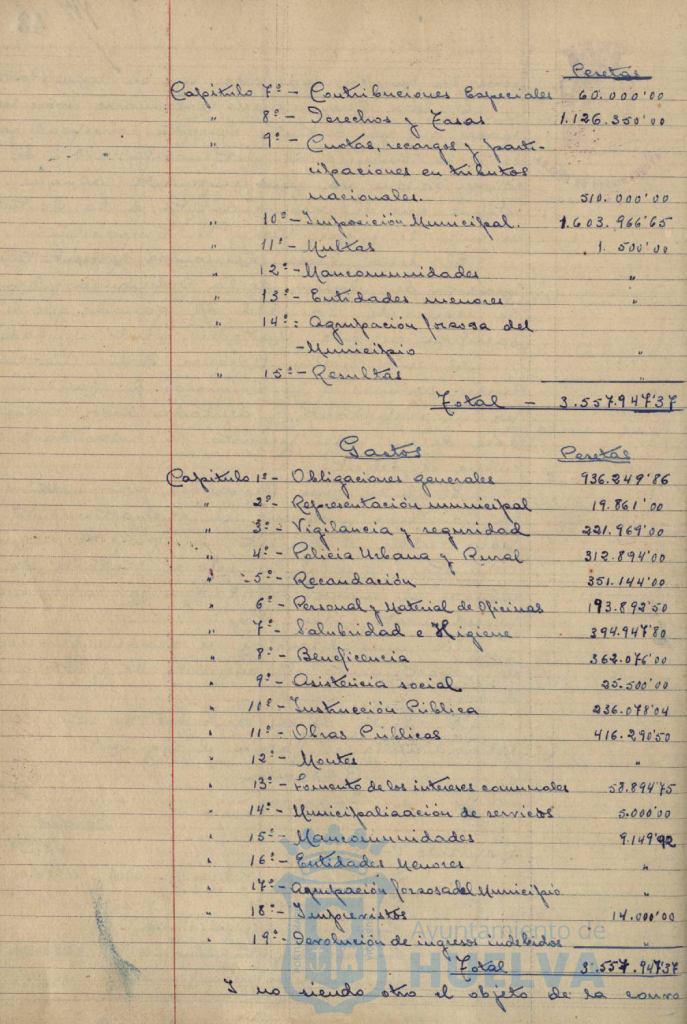 Pesetas
Capitulo 7º - Contribuciones Especiales 60.000'00
" 8º - Derechos y Tasas 1.126.350'00
" 9º - Cuotas, recargos y parti-
cipaciones en tributos
nacionales. 510.000'00
" 10º - Imposición Municipal. 1.603.966'65
" 11º - Multas 1.500'00
" 12º - Mancomunidades "
" 13º - Entidades menores "
" 14º: Agrupación forzosa del
-Municipio "
" 15º - Resultas "
Total - 3.557.947'37
Gastos Pesetas
Capitulo 1º - Obligaciones generales 936.249'86
" 2º - Representación municipal 19.861'00
" 3º - Vigilancia y seguridad 221.969'00
" 4º - Policia Urbana y Rural 312.894'00
" 5º - Recaudación 351.144'00
" 6º - Personal y Material de Oficinas 193.892'50
" 7º - Salubridad e Higiene 394.947'80
" 8º - Beneficencia 362.076'00
" 9º - Asistencia social 25.500'00
" 10º - Instrucción Pública 236.078'04
" 11º - Obras Públicas 416.290'50
" 12º - Montes "
" 13º - Fomento de los intereses comunales 58.894'75
" 14º - Municipalización de servicios 5.000'00
" 15º - Mancomunidades 9.149'92
" 16º - Entidades Menores "
" 17º - Agrupación forzosa del Municipio "
" 18º - Imprevistos 14.000'00
" 19º - Devolución de ingresos indebidos "
Total 3.557.947'37
Y no siendo otro el objeto de la convo
Ayuntamiento de
HUELVA